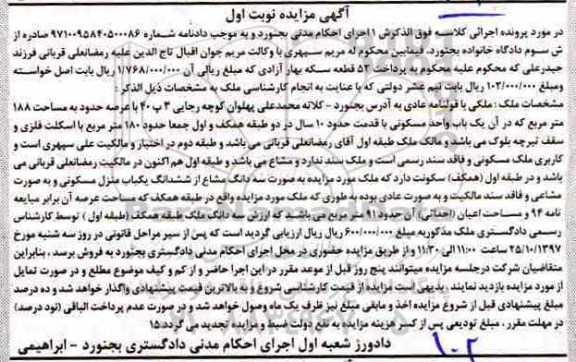 آگهی مزایده نوبت اول
در مورد پرونده اجرائی کلاسه فوق الذکرش ۱ اجرای احکام مدنی بجنورد و به موجب دادنامه شماره ۹۷۱۰۰۹۵۸۴۰۵۰۰۰۸۶ صادره از
ش سوم دادگاه خانواده بجنورد، فیمابین محکوم له مریم سپهری با وکالت مریم جوان اقبال تاج الدین علیه رمضانعلی قربانی فرزند
حیدرعلی که محکوم علیه محکوم به پرداخت ۵۲ قطعه سکه بهار آزادی که مبلغ ریالی آن ۱/۷۶۸/۰۰۰/۰۰۰ ریال بابت اصل خواسته
ومبلغ ۱۰۲/۰۰۰/۰۰۰ ریال بابت نیم عشر دولتی که با عنایت به انجام کارشناسی ملک به مشخصات ذیل الذکر:
مشخصات ملک: ملکی با قولنامه عادی به آدرس بجنورد - کلاته محمدعلی پهلوان کوچه رجایی ۳ پ ۴۰ با عرصه حدود به مساحت ۱۸۸
متر مربع که در آن یک باب واحد مسکونی با قدمت حدود ۱۰ سال در دو طبقه همکف و اول جمعا حدود ۱۸۰ متر مربع با اسکلت فلزی و
سقف تیرچه بلوک می باشد و مالک ملک طبقه اول آقای رمضانعلی قربانی می باشد و طبقه دوم در اختیار و مالکیت علی سپهری است و
کاربری ملک مسکونی و فاقد سند رسمی است و ملک سند ندارد و مشاع می باشد و طبقه اول هم اکنون در مالکیت رمضانعلی قربانی می
باشد و در طبقه اول (همکف) سکونت دارد که ملک مورد مزایده به صورت سه دانگ مشاع از ششدانگ یکباب منزل مسکونی و به صورت
مشاعی و فاقد سند مالکیت و به صورت عادی بوده به طوری که ملک مورد مزایده واقع در طبقه همکف که مساحت عرصه آن برابر مبایعه
نامه ۹۴ و مساحت اعیان (احداثی) آن حدود ۹۱ متر مربع می باشند که ارزش سه دانگ ملک طبقه همکف (طبقه اول) توسط کارشناس
رسمی دادگستری ملک مذکور به مبلغ ۶۰۰/۰۰۰/۰۰۰ ریال ارزیابی گردید است که پس از سیر مراحل قانونی در روز سه شنبه مورخ
۲۵/۱۰/۱۳۹۷ ساعت ۱۱:۰۰ الی ۱۱:۳۰ و از طریق مزایده حضوری در محل اجرای احکام مدنی دادگستری بجنورد به فروش برسد، بنابراین
متقاضیان شرکت درجلسه مزایده میتوانند پنج روز قبل از موعد مقرر در این اجرا حاضر و از کم و کیف موضوع مطلع و در صورت تمایل
از مورد مزایده بازدید نمایند. بدیهی است مزایده از قیمت کارشناسی شروع و به بالاترین قیمت پیشنهادی واگذار خواهد شد و ده درصد
مبلغ پیشنهادی قبل از شروع مزایده اخذ و مابقی مبلغ نیز ظرف یک ماه وصول خواهد شد و در صورت عدم پرداخت الباقی (نود درصد)
در مهلت مقرر، مبلغ تودیعی پس از کسر هزینه مزایده به نفع دولت ضبط و مزایده تجدید می گردد.۱۵
دادورز شعبه اول اجرای احکام مدنی دادگستری بجنورد - ابراهیمی
۱۰۲